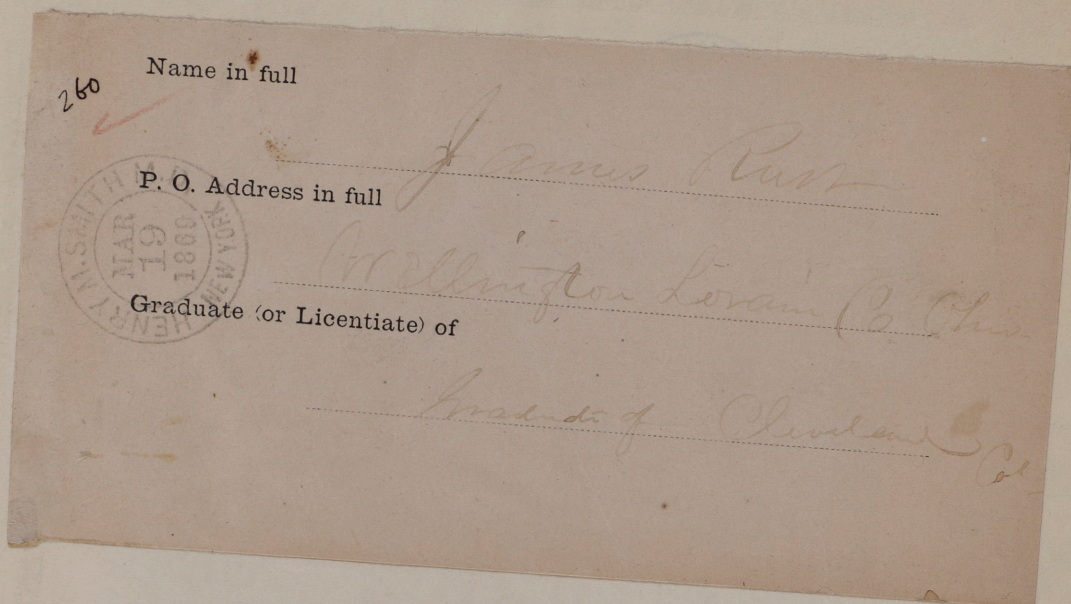 260
Name in full
James Rust
P. O. Address in full
Wellington Lorain Co Ohio
Graduate (or Licentiate) of
Graduate of Cleveland Col
HENRY M. SMITH M.D. NEW YORK
MAR
19
1860